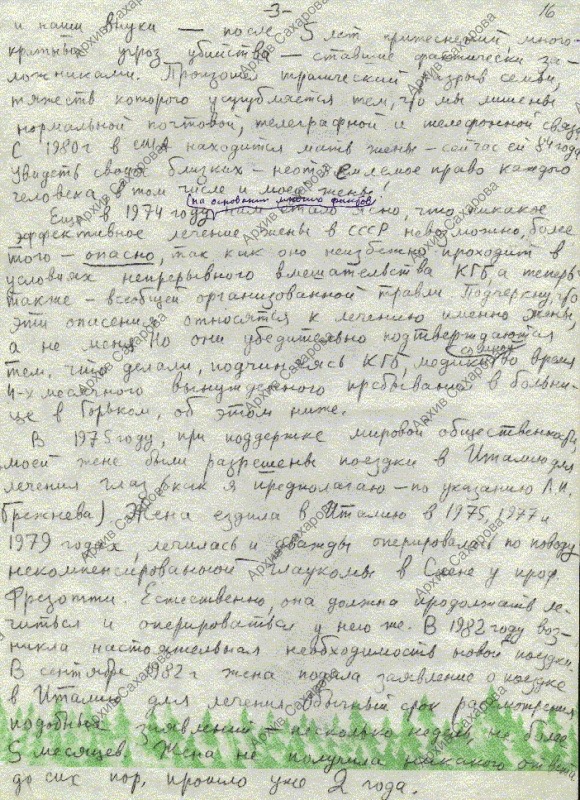 -3-
16
и наши внуки — после 5 лет притеснений, много-
кратных угроз убийства — ставшие фактически за-
ложниками. Произошел трагический разрыв семьи,
тяжесть которого усугубляется тем, что мы лишены
нормальной почтовой, телеграфной и телефонной связи.
С 1980 г в США находится мать жены — сейчас ей 84 года.
Увидеть своих близких — неотъемлемое право каждого
человека в том числе и моей жены!
на основании многих фактов
Еще в 1974 году нам стало ясно, что никакое
эффективное лечение жены в СССР невозможно, более
того — опасно, так как оно неизбежно проходит в
условиях непрерывного вмешательства КГБ, а теперь
также — всеобщей организованной травли. Подчеркну, что
эти опасения относятся к лечению именно жены,
а не меня. Но они убедительно подтверждаются
со мной
тем, что делали, подчиняясь КГБ, медики во время
4-х месячного вынужденного пребывания в больни-
це в Горьком, об этом ниже.
В 1975 году, при поддержке мировой общественности,
моей жене были разрешены поездки в Италию для
лечения глаз (как я предполагаю — по указанию Л.И.
Брежнева) Жена ездила в Италию в 1975, 1977 и
1979 годах, лечилась и дважды оперировалась по поводу
некомпенсированной глаукомы в Сиене у проф.
Фрезотти. Естественно, она должна продолжать ле-
читься и оперироваться у него же. В 1982 году воз-
никла настоятельная необходимость новой поездки.
В сентябре 1982 г жена подала заявление о поездке
в Италию для лечения. Обычный срок рассмотрения
подобных заявлений — несколько недель, не более
5 месяцев. Жена не получила никакого ответа
до сих пор, прошло уже 2 года.
Архив Сахарова